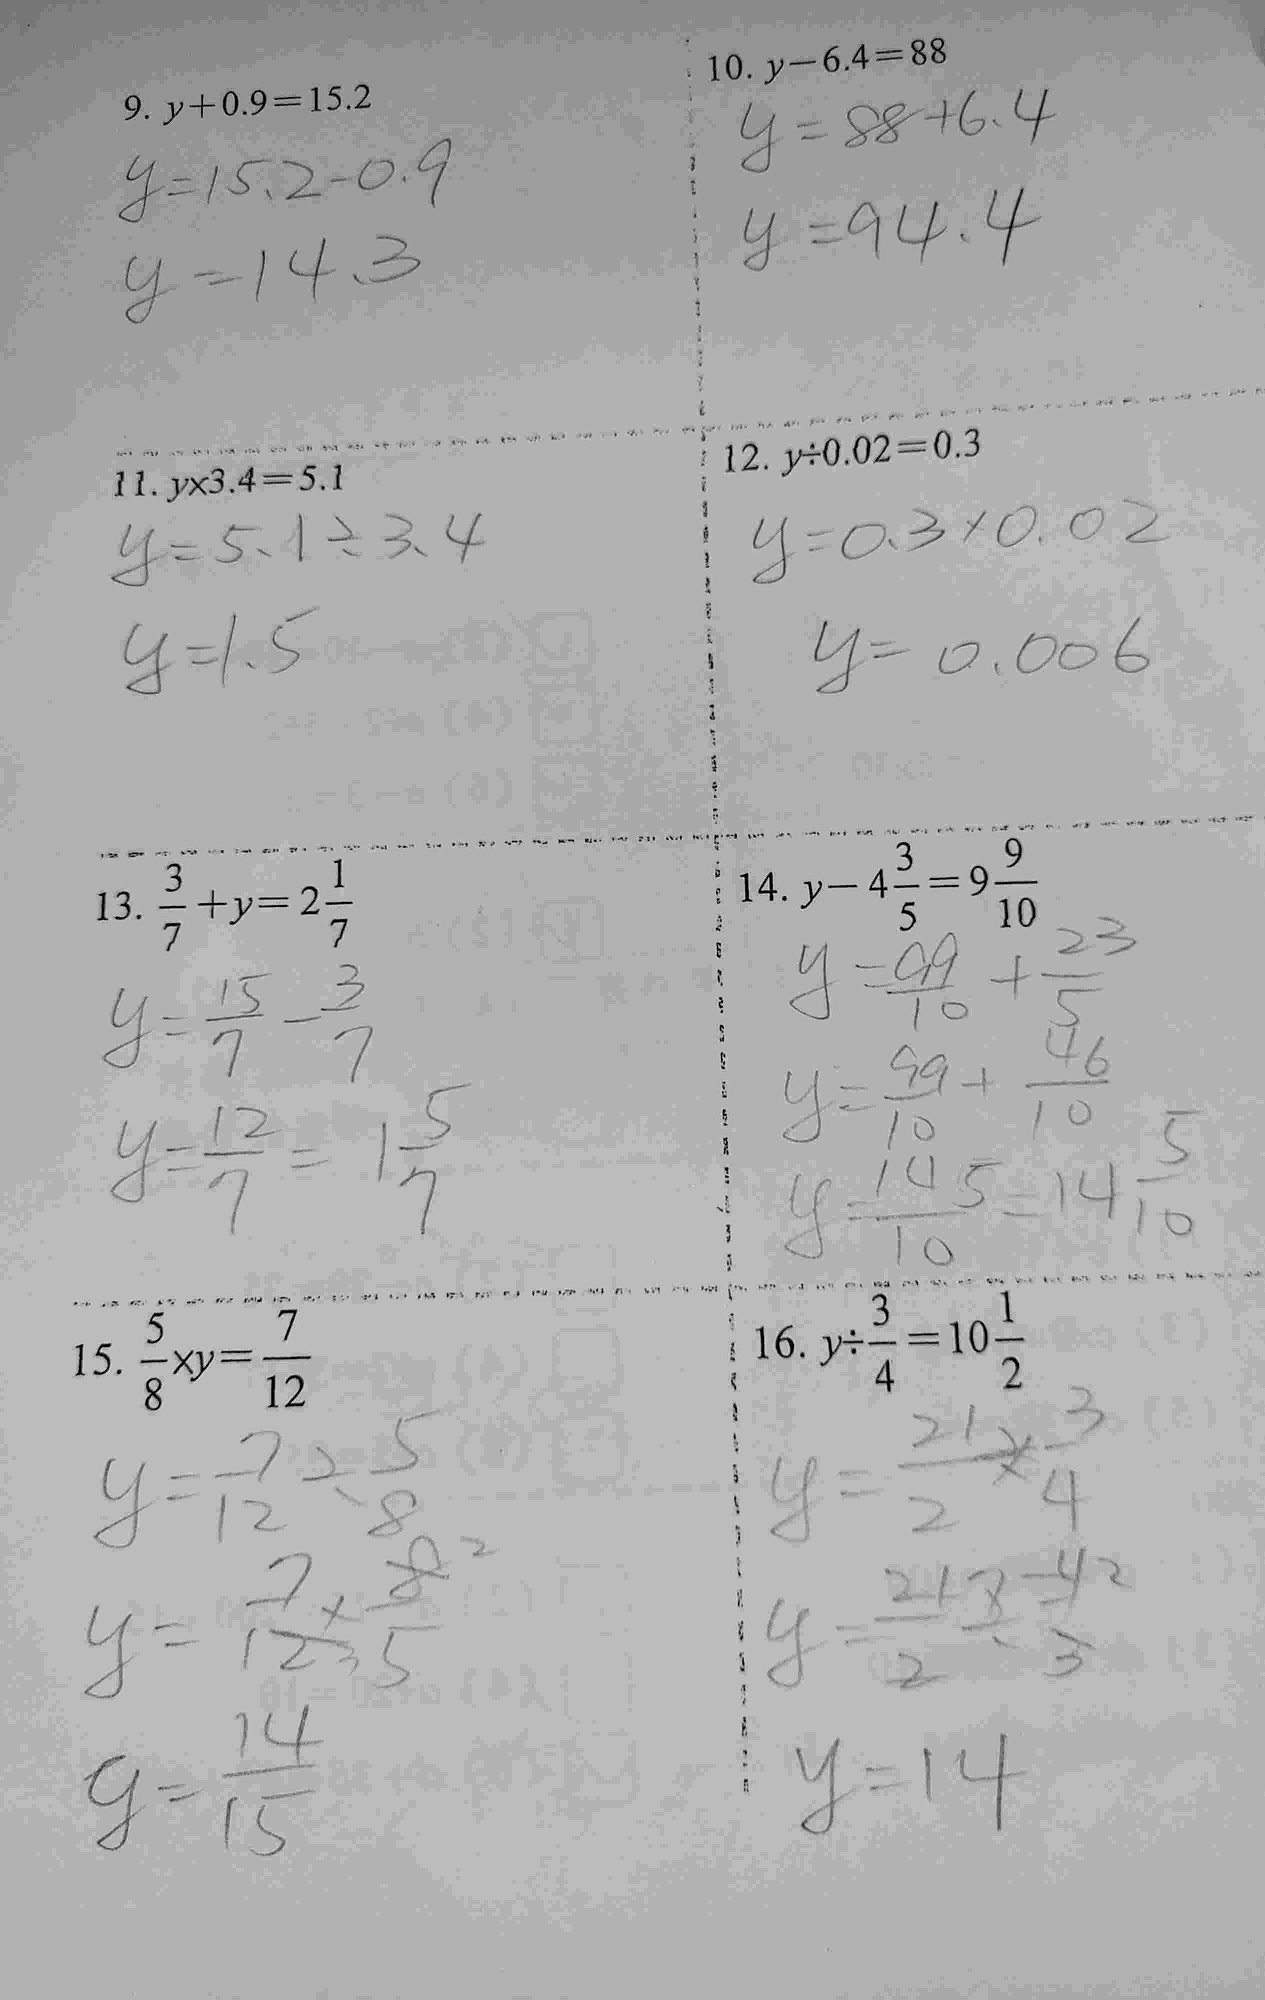 9. y+0.9=15.2
y=15.2-0.9
y=14.3
10. y-6.4=88
y=88+6.4
y=94.4
11. y×3.4=5.1
y=5.1÷3.4
y=1.5
12. y÷0.02=0.3
y=0.3×0.02
y=0.006
13. 3/7+y=2 1/7
y=15/7-3/7
y=12/7=1 5/7
14. y-4 3/5=9 9/10
y=99/10+23/5
y=99/10+46/10
y=145/10=14 5/10
15. 5/8×y=7/12
y=7/12÷5/8
y=7/12 3×8 2/5
y=14/15
16. y÷3/4=10 1/2
y=21/2×3/4
y=21/2÷42/3
y=14